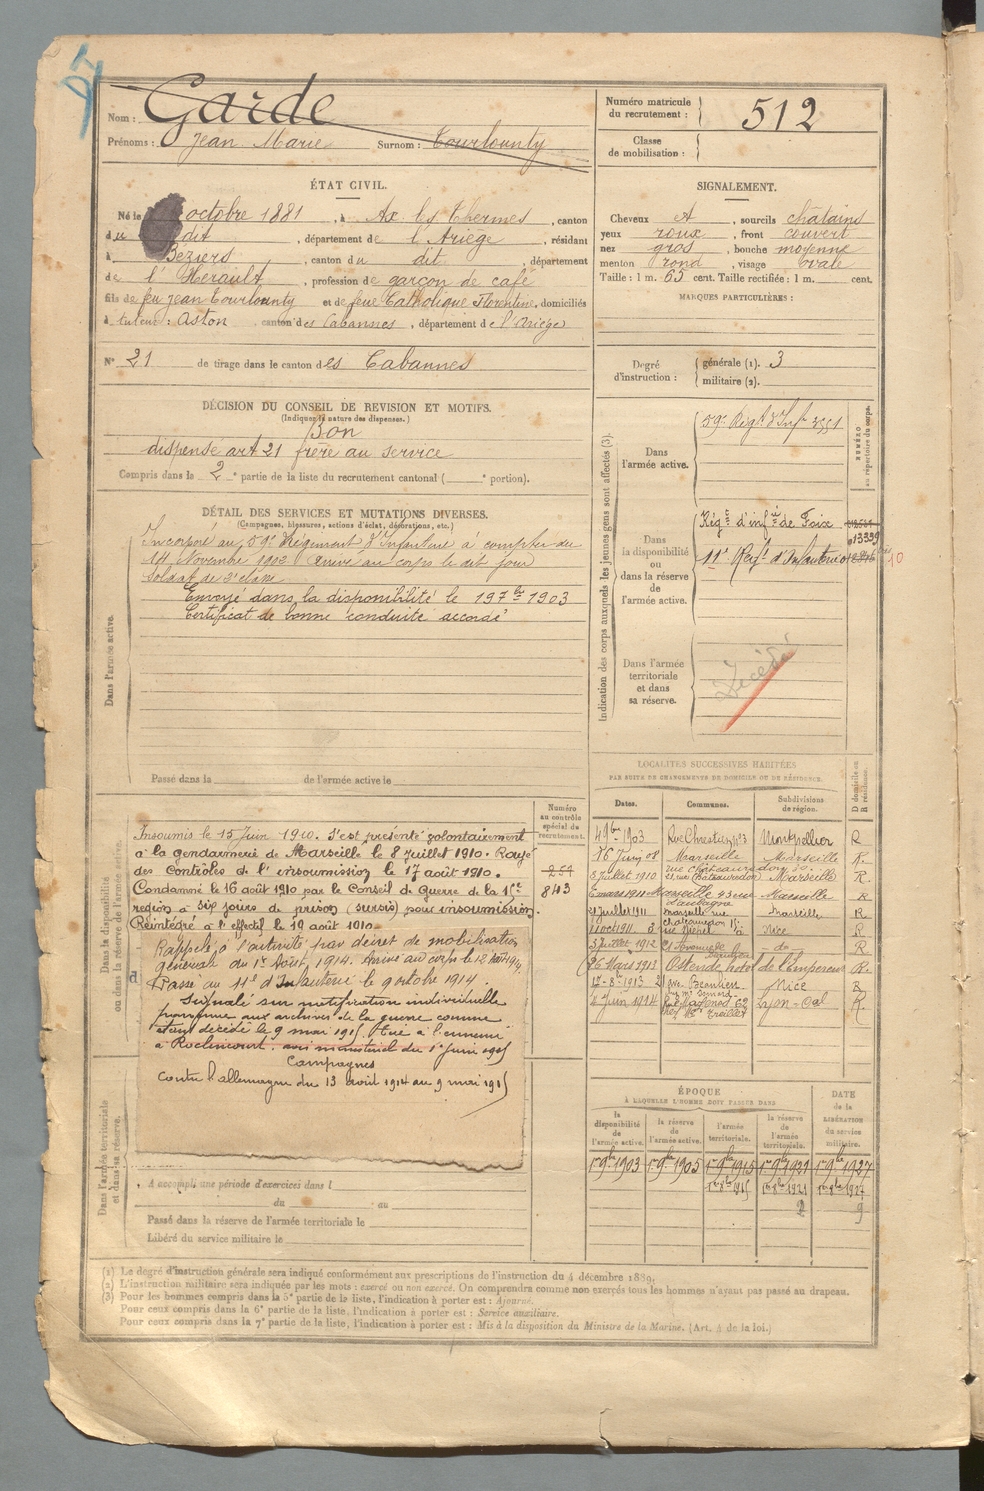 Nom : Garde
Prénoms : Jean Marie Surnom : Tourlounty
Numéro matricule du recrutement : 512
Classe de mobilisation :
ÉTAT CIVIL.
Né le octobre 1881, à Ax les Thermes, canton
du dit, département de l'Ariège, résidant
à Beziers, canton du dit, département
de l'Herault, profession de garçon de café
fils de feu Jean Tourlounty et de feue Catholique Florentine, domiciliés
à tuteur : Aston canton des Cabannes, département de l'Ariège
N° 21 de tirage dans le canton des Cabannes
SIGNALEMENT.
Cheveux et, sourcils châtains
yeux roux, front couvert
nez gros, bouche moyenne
menton rond, visage ovale
Taille : 1 m. 65 cent. Taille rectifiée : 1 m. cent.
MARQUES PARTICULIÈRES :
Degré d'instruction : générale (1). 3
militaire (2).
DÉCISION DU CONSEIL DE REVISION ET MOTIFS.
(Indiquer la nature des dispenses.)
Bon
dispensé art 21 frère au service
Compris dans la 2e partie de la liste du recrutement cantonal ( e portion).
DÉTAIL DES SERVICES ET MUTATIONS DIVERSES.
(Campagnes, blessures, actions d'éclat, décorations, etc.)
Dans l'armée active.
Incorporé au 59e Régiment d'Infanterie à compter du
14 Novembre 1902 arrivé au corps le dit jour
soldat de 2e classe
Envoyé dans la disponibilité le 19 7bre 1903
Certificat de bonne conduite accordé
Passé dans la de l'armée active le
Indication des corps auxquels les jeunes gens sont affectés (3).
NUMÉRO au répertoire du corps.
Dans l'armée active.
59e Régt d'Infie 3551
Dans la disponibilité ou dans la réserve de l'armée active.
Régt d'infie de Foix
13339
11e Régt d'Infanterie
10
Dans l'armée territoriale et dans sa réserve.
Décédé
Dans la disponibilité ou dans la réserve de l'armée active.
Numéro au contrôle spécial du recrutement.
251
843
Insoumis le 15 Juin 1910. S'est présenté volontairement
à la gendarmerie de Marseille le 8 Juillet 1910. Rayé
des Contrôles de l'insoumission le 17 août 1910.
Condamné le 16 août 1910 par le Conseil de Guerre de la 15e
région à six jours de prison (sursis) pour insoumission.
Réintégré à l'effectif le 19 août 1910
Rappelé à l'activité par décret de mobilisation
générale du 1er Août 1914. Arrivé au corps le 12 Août 1914
Passé au 11e d'Infanterie le 9 octobre 1914.
Signalé sur notification individuelle
parvenue aux archives de la guerre comme
étant décédé le 9 mai 1915 tué à l'ennemi
à Roclincourt. avis ministériel du 1er Juin 1915
Campagnes
contre l'allemagne du 13 août 1914 au 9 mai 1915
LOCALITÉS SUCCESSIVES HABITÉES
PAR SUITE DE CHANGEMENTS DE DOMICILE OU DE RÉSIDENCE.
Dates. Communes. Subdivisions de région. D domicile ou R résidence.
4 9bre 1903 Montpellier R
16 Juin 08 Marseille Marseille R.
8 juillet 1910 Marseille R.
6 mars 1911 Marseille Marseille R
21 juillet 1911 Marseille rue Marseille R
11 oct 1911 Nice R
3 Juillet 1912 do R
26 Mars 1913 Ostende hotel de l'Empereur R.
17-8-1913 Beaulieu Nice R
4 juin 1914 62 Lyon R.
Dans l'armée territoriale et dans sa réserve.
A accompli une période d'exercices dans l
du au
Passé dans la réserve de l'armée territoriale le
Libéré du service militaire le
ÉPOQUE
À LAQUELLE L'HOMME DOIT PASSER DANS
la disponibilité de l'armée active. la réserve de l'armée active. l'armée territoriale. la réserve de l'armée territoriale. DATE de la LIBÉRATION du service militaire.
1er 9bre 1903 1er 9bre 1905 1er 9bre 1915 1er 9bre 1921 1er 9bre 1927
1er 8bre 1915 1er 8bre 1921 1er 8bre 1927
(1) Le degré d'instruction générale sera indiqué conformément aux prescriptions de l'instruction du 4 décembre 1889.
(2) L'instruction militaire sera indiquée par les mots : exercé ou non exercé. On comprendra comme non exercés tous les hommes n'ayant pas passé au drapeau.
(3) Pour les hommes compris dans la 5e partie de la liste, l'indication à porter est : Ajourné.
Pour ceux compris dans la 6e partie de la liste, l'indication à porter est : Service auxiliaire.
Pour ceux compris dans la 7e partie de la liste, l'indication à porter est : Mis à la disposition du Ministre de la Marine. (Art. 4 de la loi.)